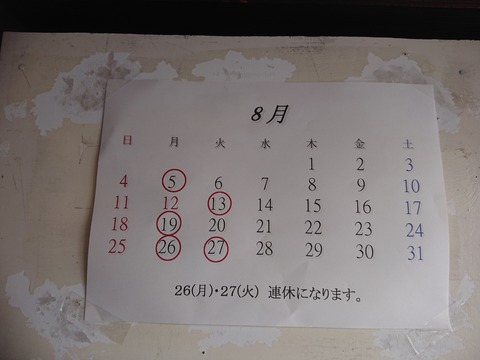 8月
日 月 火 水 木 金 土
1 2 3
4 5 6 7 8 9 10
11 12 13 14 15 16 17
18 19 20 21 22 23 24
25 26 27 28 29 30 31
26(月)・27(火) 連休になります。